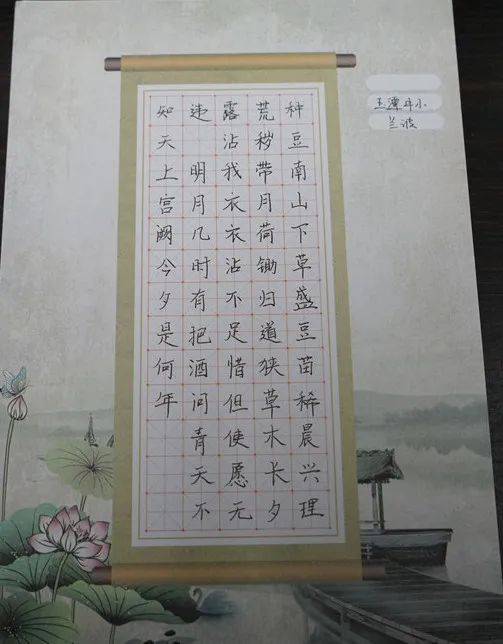 种豆南山下草盛豆苗稀晨兴理
荒秽带月荷锄归道狭草木长夕
露沾我衣衣沾不足惜但使愿无
违 明月几时有把酒问青天不
知天上宫阙今夕是何年
玉潭小
兰波